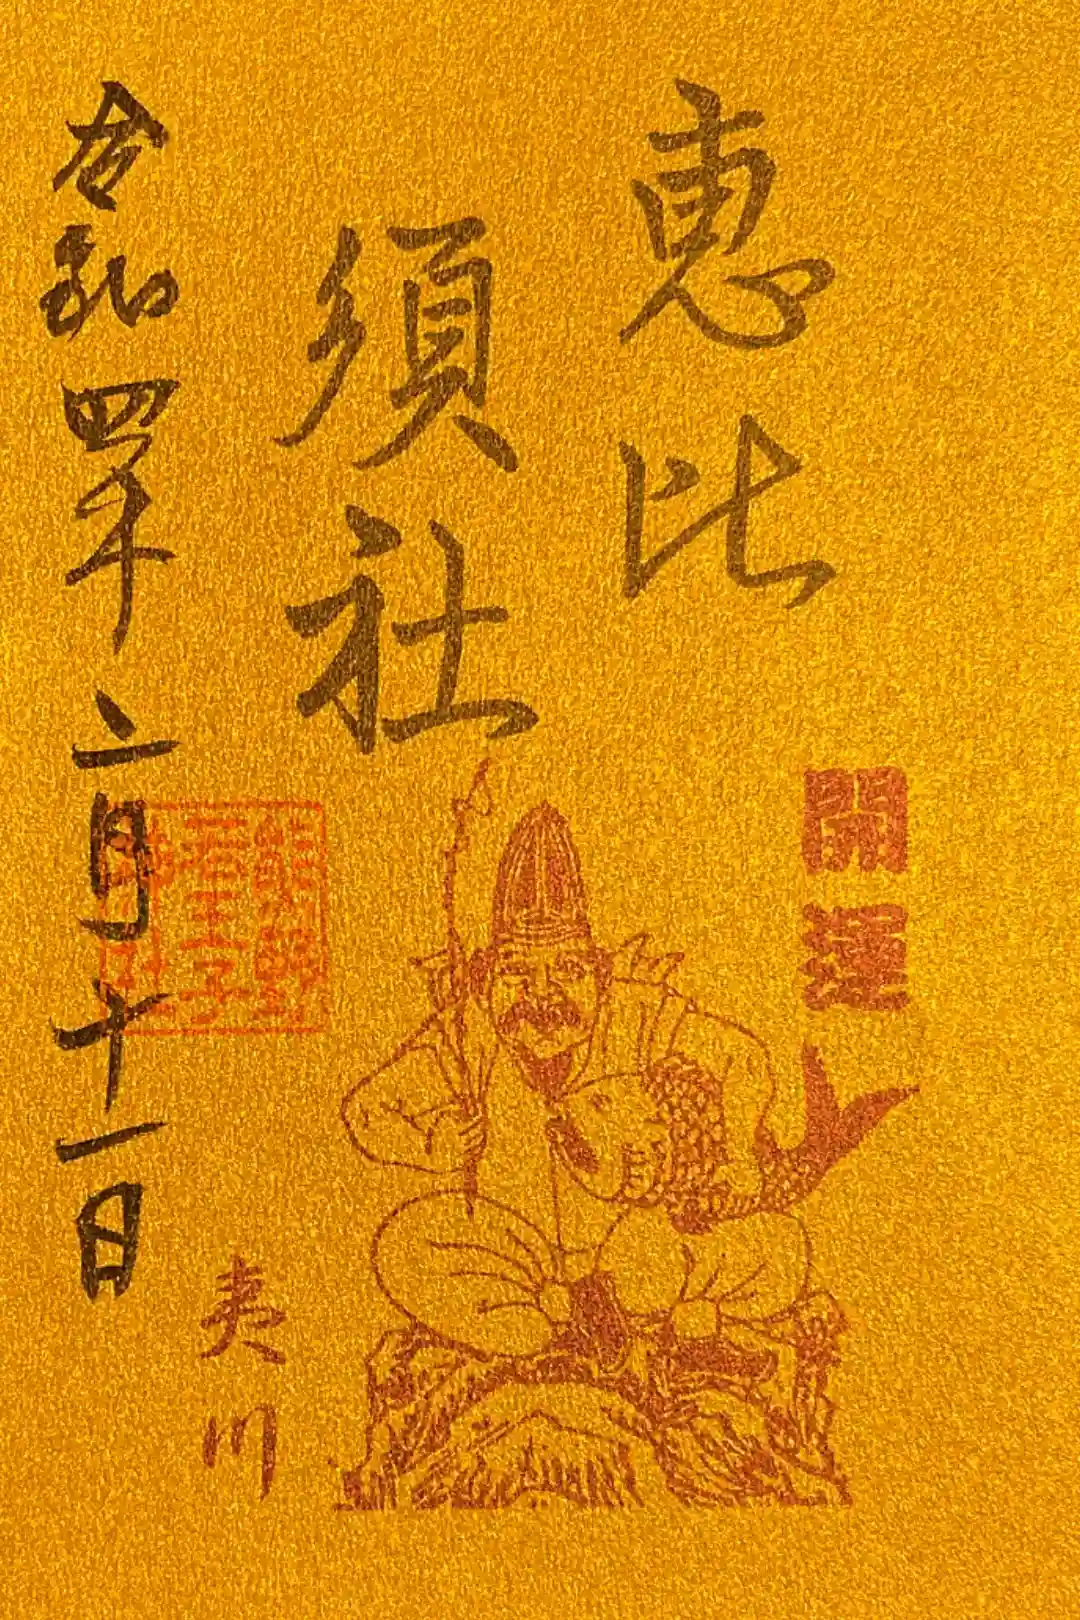 恵比
須社
開運
熊野
若王子
神社
夷川
令和四年二月十一日